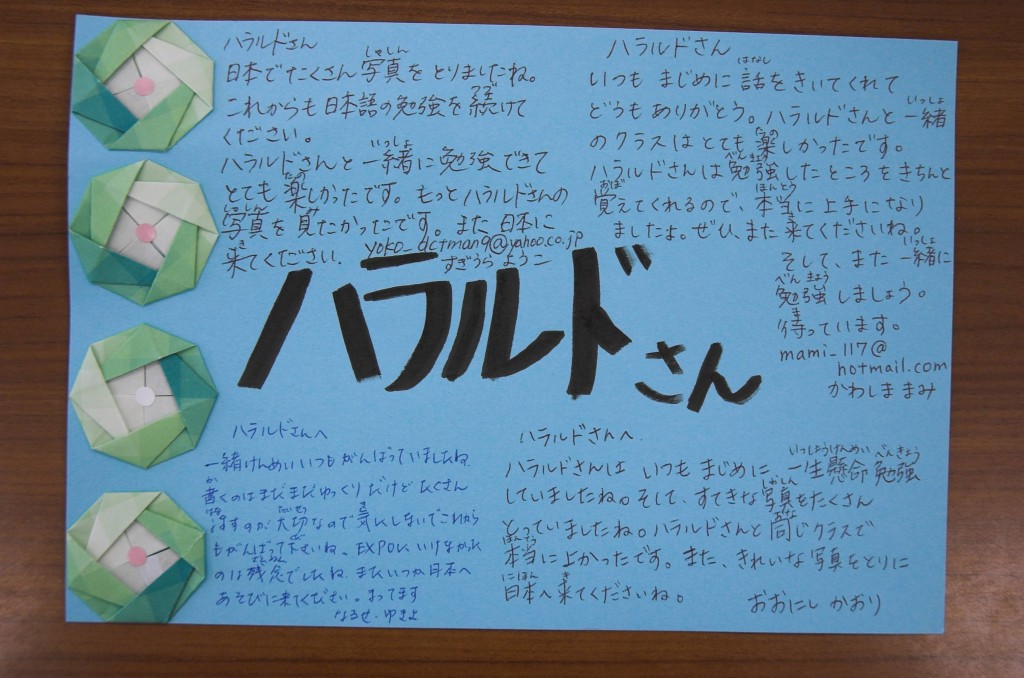 ハラルドさん
日本でたくさん写真をとりましたね。
これからも日本語の勉強を続けて
ください。
ハラルドさんと一緒に勉強できて
とても楽しかったです。もっとハラルドさんの
写真を見たかったです。また日本に
来てください.
yoko_dctman9@yahoo.co.jp
すぎうら ようこ
ハラルドさん
いつも まじめに 話をきいてくれて
どうも ありがとう。ハラルドさんと 一緒
のクラスはとても 楽しかったです。
ハラルドさんは 勉強したところをきちんと
覚えてくれるので、本当に上手になり
ましたよ。ぜひ、また来てくださいね。
そして、また 一緒に
勉強しましょう。
待っています。
mami_117@
hotmail.com
かわしま まみ
ハラルドさん
ハラルドさんへ
一緒けんめいいつもがんばっていましたね.
書くのはまだまだゆっくりだけど たくさん
話すのが大切なので気にしないでこれから
もがんばって下さいね。EXPOに いけなかった
のは残念でしたね. またいつか日本へ
あそびに来てください。まってます
なるせ・ゆきよ
ハラルドさんへ.
ハラルドさんは いつも まじめに 一生懸命 勉強
していましたね。そして、すてきな写真をたくさん
とっていましたね。ハラルドさんと 同じクラスで
本当に よかったです。また、きれいな写真をとりに
日本へ来てくださいね。
おおにし かおり